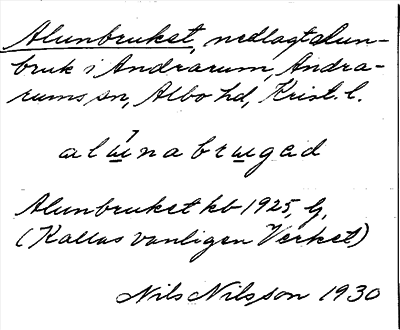 Alunbruket, nedlagt alun-
bruk i Andrarum, Andra-
rums sn, Albo hd, Krist. l.
Alunbruket kb 1925, G,
(Kallas vanligen Verket)
Nils Nilsson 1930